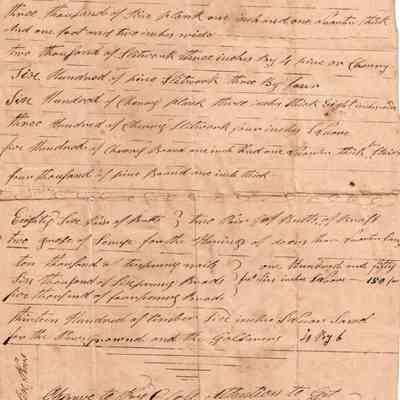 three thousand of Pine plank one inch and one Quarter thick
And one foot and two inches wide
two thousand of Slitwork three inches By 4 pine or Cherry
Six Hundred of pine Slitwork three By four
Six Hundred of Cherry plank three inches thick Eight inches
three Hundred of Cherry Slitwork four inches Square
five Hundred of Cherry Board one inch And one Quarter thick
four thousand of pine Board one inch thick
Eighty Six Pair of Butts two Pair of Butts of
two gross of for the of
ten thousand of tenpenny nails one Hundred and fifty
Six thousand of Sixpenny Brads inches Square 150
five thousand of fourpenny Brads
thirteen Hundred of timber Six inches Square Sawed
for the and the 4 By 6
to Pay attention to Get